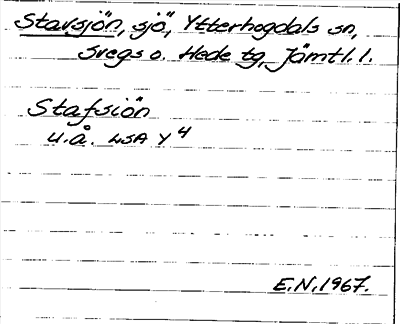 Stavsjön, sjö, Ytterhogdals sn,
Svegs o. Hede tg, Jämtl. l.
Stafsiön
u.å. LSA Y 4
E.N. 1967.